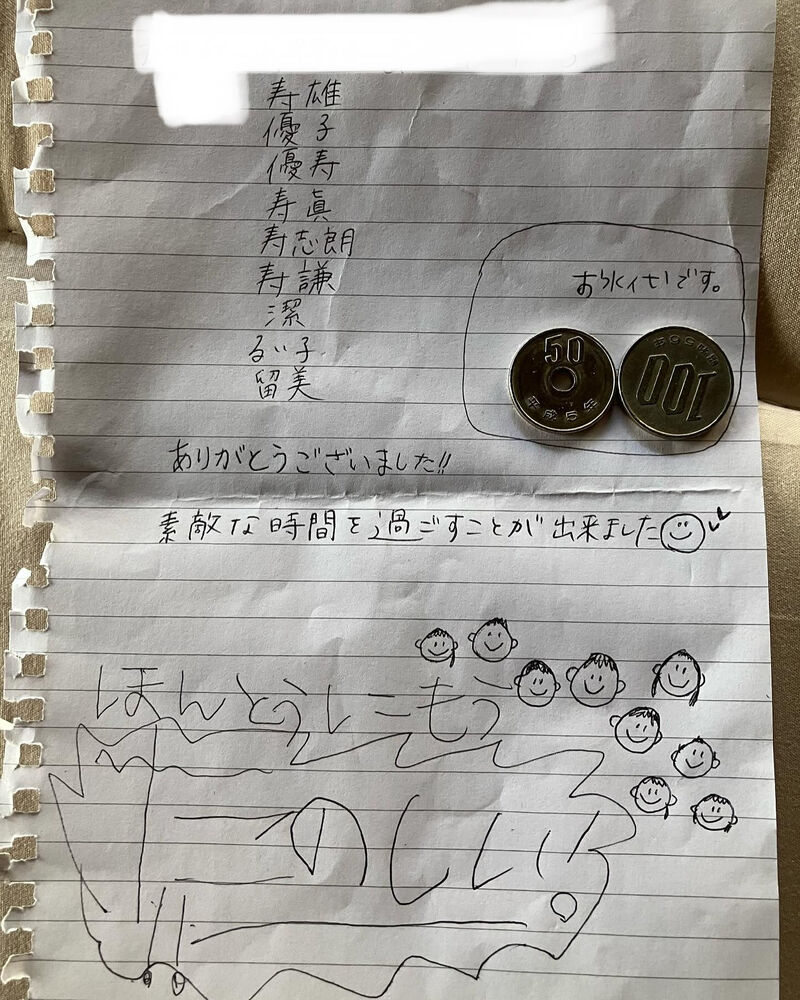 寿雄
優子
優寿
寿眞
寿志朗
寿謙
潔
るい子
留美
お水代です。
50
平成5年
100
ありがとうございました!!
素敵な時間を過ごすことが出来ました
ほんとうにもう
たのしい